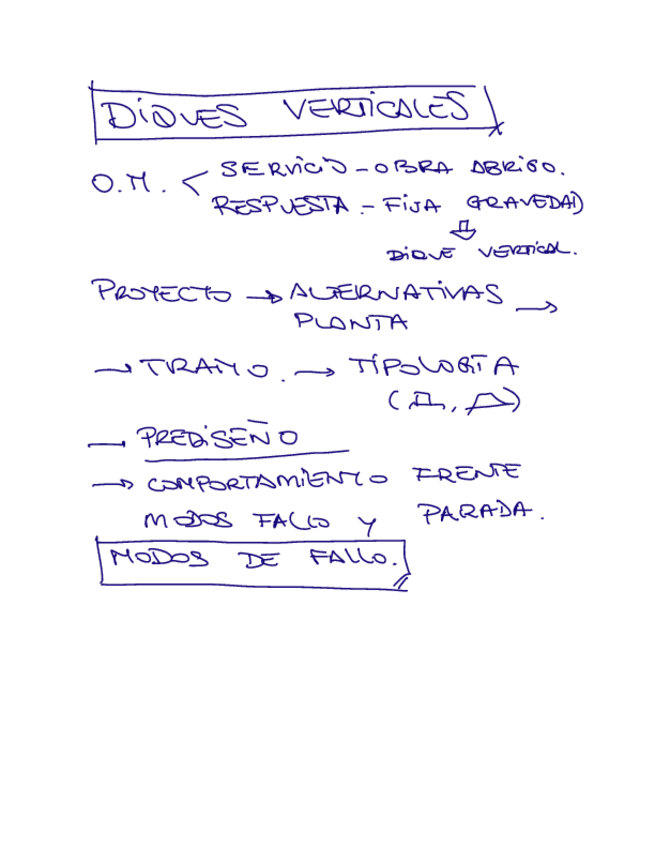 DIQUES VERTICALES
O.M. < SERVICIO - OBRA ABRIGO.
RESPUESTA - FIJA (GRAVEDAD)
⇩
DIQUE VERTICAL.
PROYECTO → ALTERNATIVAS →
PLANTA
→ TRAMO. → TIPOLOGÍA
( , )
→ PREDISEÑO
→ COMPORTAMIENTO FRENTE
MODOS FALLO Y PARADA.
MODOS DE FALLO.